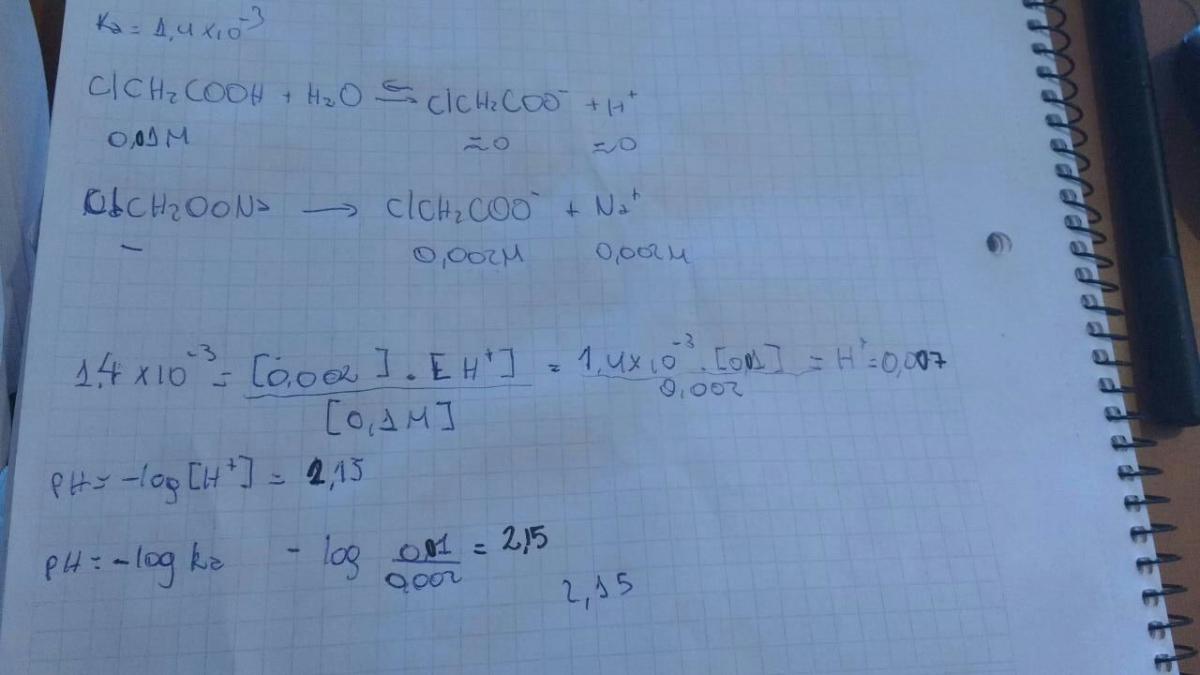 Ka = 1,4x10⁻³
ClCH₂COOH + H₂O ⇌ ClCH₂COO⁻ + H⁺
0,01M ≈0 ≈0
ClCH₂OONa → ClCH₂COO⁻ + Na⁺
– 0,002M 0,002M
1,4 x10⁻³ = [0,002] . [H⁺] / [0,1M] = 1,4x10⁻³ . [0,01] / 0,002 = H⁺ = 0,007
pH = -log [H⁺] = 2,15
pH = -log ka - log 0,01 / 0,002 = 2,15
2,15